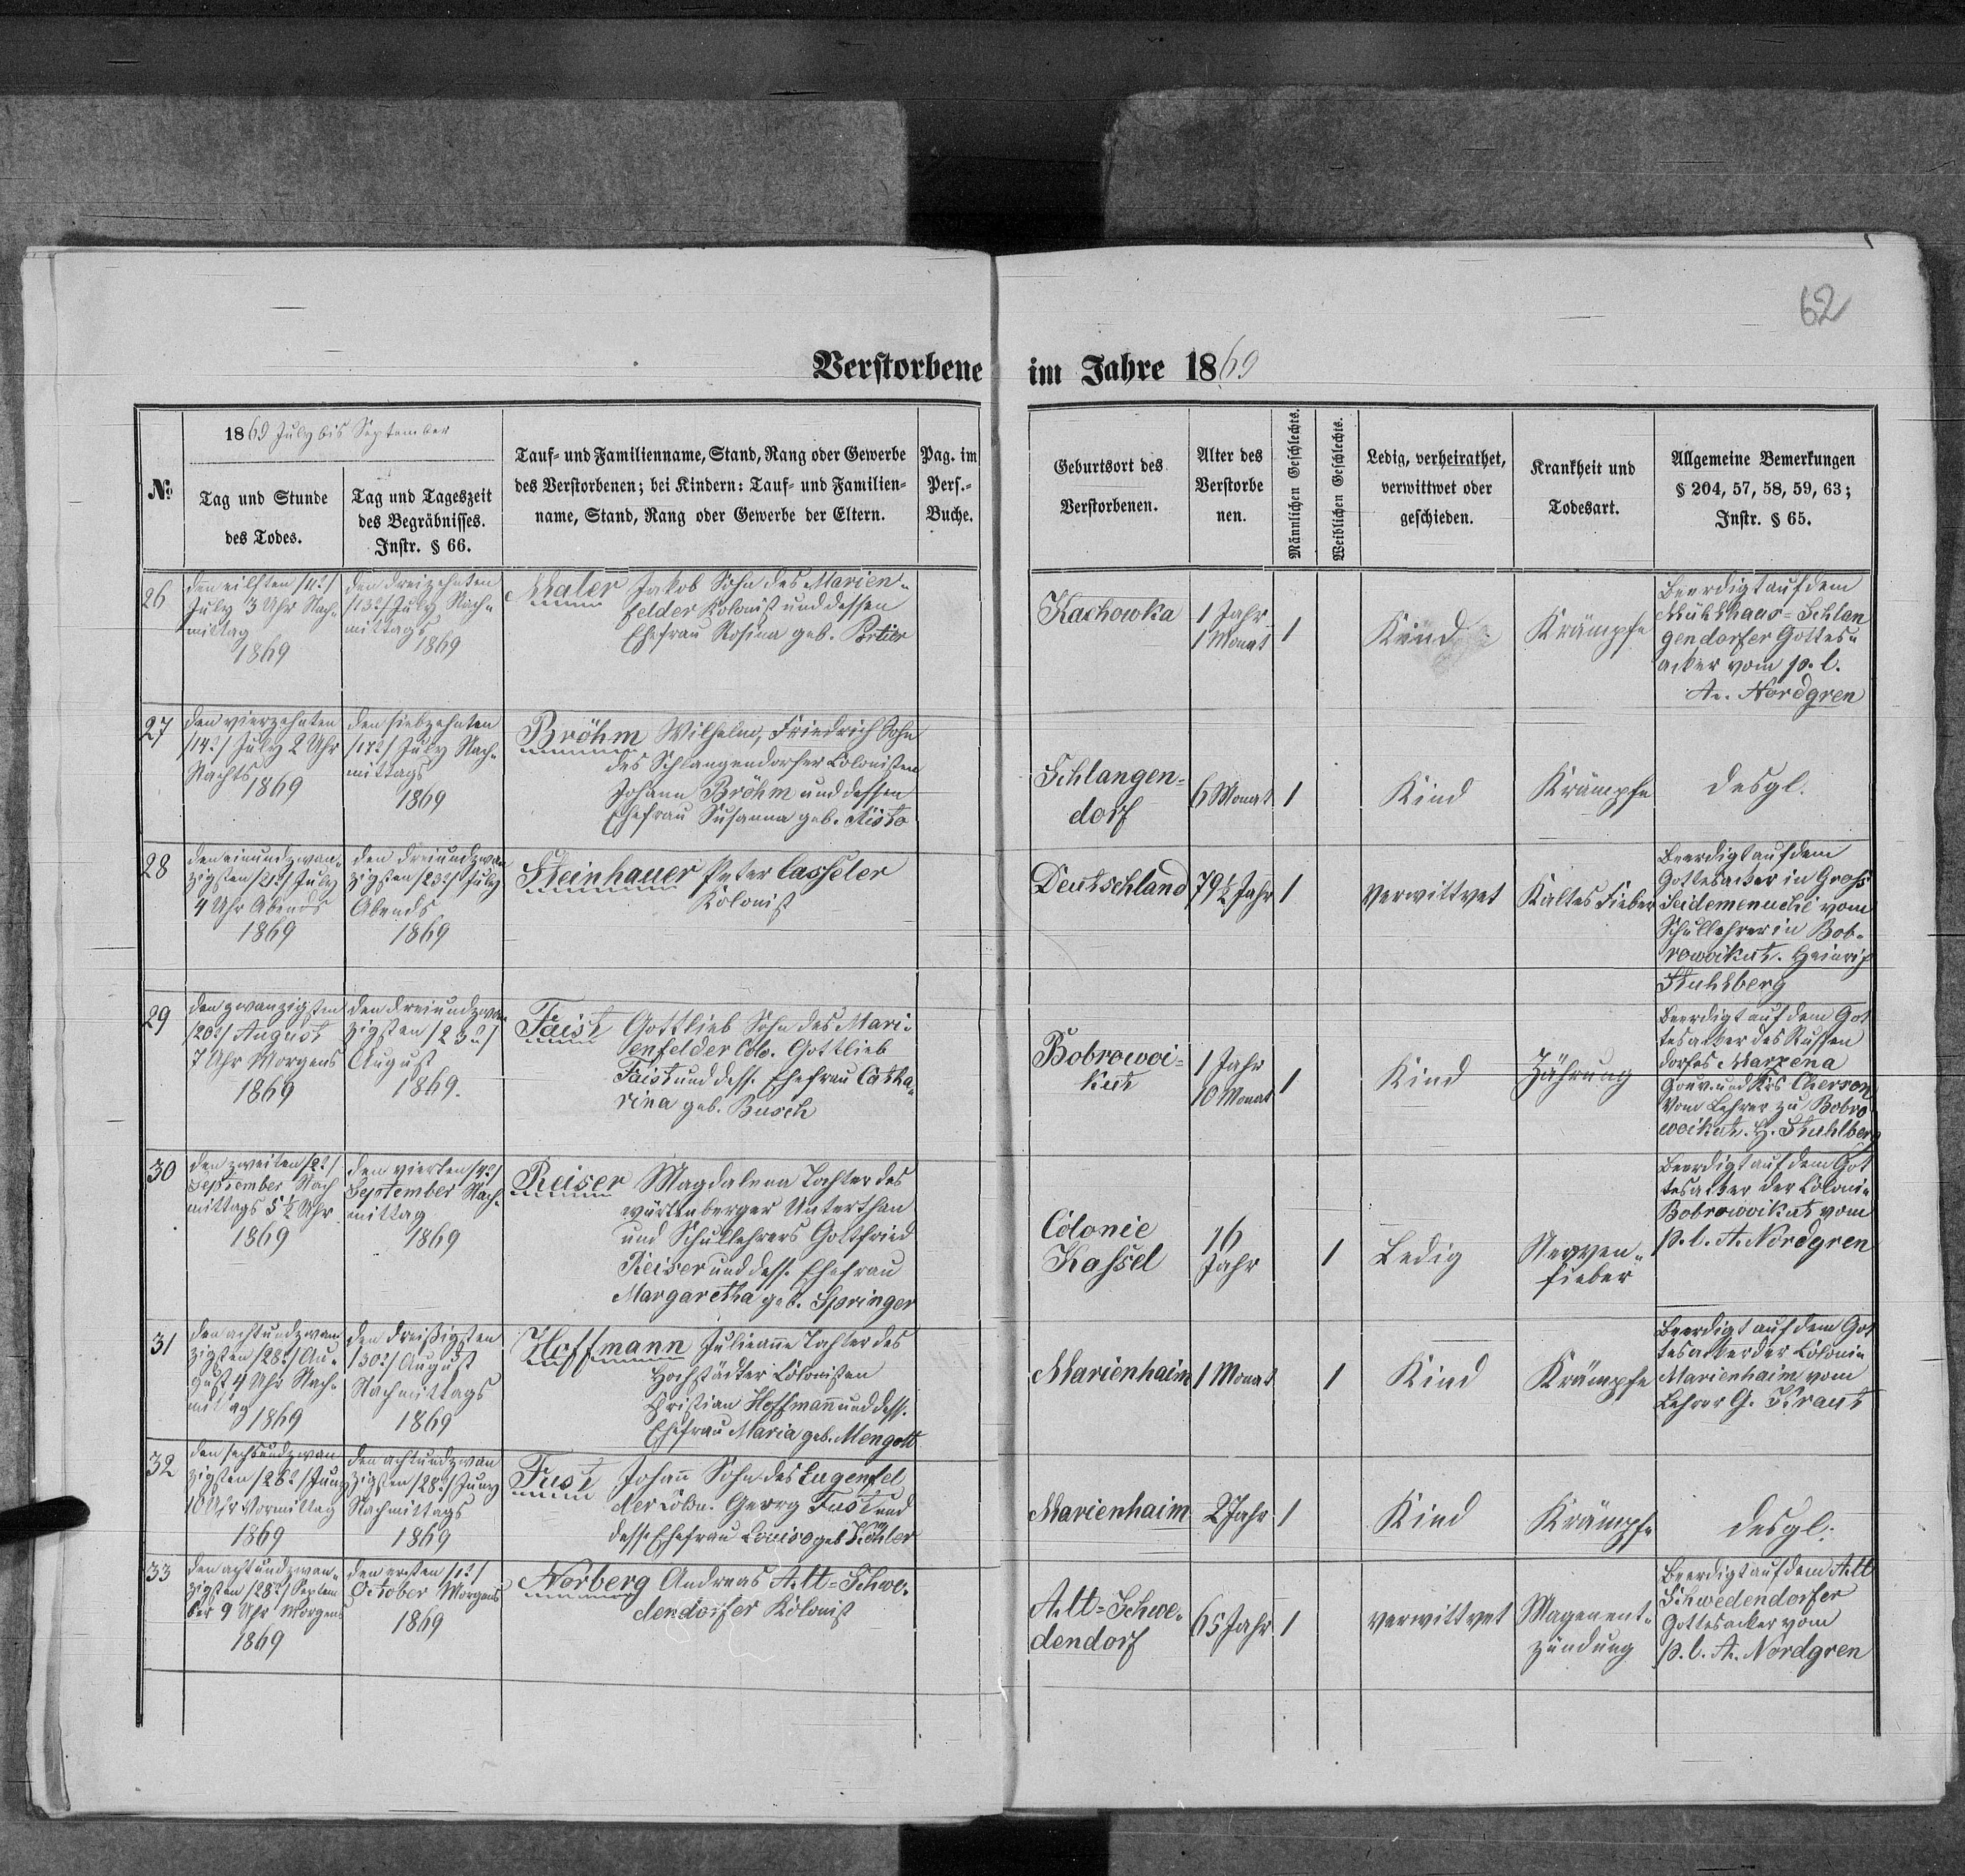 62
Verstorbene im Jahre 1869
№
1869 July bis September
Tag und Stunde
des Todes.
Tag und Tageszeit
des Begräbnisses.
Instr. § 66.
Tauf- und Familienname, Stand, Rang oder Gewerbe
des Verstorbenen; bei Kindern: Tauf- und Familien-
name, Stand, Rang oder Gewerbe der Eltern.
Pag. im
Pers.-
Buche.
Geburtsort des
Verstorbenen.
Alter des
Verstorbe
nen.
Männlichen Geschlechts.
Weiblichen Geschlechts.
Ledig, verheirathet,
verwittwet oder
geschieden.
Krankheit und
Todesart.
Allgemeine Bemerkungen
§ 204, 57, 58, 59, 63;
Instr. § 65.
26
den eilften /11t/
July 3 Uhr Nach-
mittag
1869
den dreizehnten
/13t/ July Nach-
mittags
1869
Maler Jakob Sohn des Marien-
felder Kolonist und dessen
Ehefrau Rosina geb.
Kachowka
1 Jahr
1 Monat
1
Kind
Krämpfe
Beerdigt auf dem
Mühlhaus-Schlan
gendorfer Gottes-
acker vom p. l.
A. Nordgren
27
den vierzehnten
/14t/ July 2 Uhr
Nachts
1869
den siebzehnten
/17t/ July Nach-
mittags
1869
Bröhm Wilhelm, Friedrich Sohn
des Schlangendorfer Colonisten
Johann Bröhm und dessen
Ehefrau Susanna geb.
Schlangen-
dorf
6 Monat
1
Kind
Krämpfe
desgl.
28
den einundzwan-
zigsten /21t/ July
4 Uhr Abends
1869
den dreiundzwan
zigsten /23t/ July
Abends
1869
Steinhauer Peter Casseler
Kolonist
Deutschland
79½ Jahr
1
Verwittwet
Kaltes Fieber
Beerdigt auf dem
Gottesacker in Gross
Seidemenuche vom
Schullehrer in Bob-
rowoikut. Heinrich
Stuhlberg
29
den zwanzigsten
/20t/ August
7 Uhr Morgens
1869
den dreiundzwan
zigsten /23t/
August
1869.
Faist Gottlieb Sohn des Mari-
enfelder Colo. Gottlieb
Faist und dess. Ehefrau Catha-
rina geb. Busch
Bobrowoi-
kut
1 Jahr
10 Monat
1
Kind
Zährung
Beerdigt auf dem Got
tesacker des Russen
dorfes Marxena
Gouv. und Krs Cherson
Vom Lehrer zu Bobro
woikut. H. Stuhlberg
30
den zweiten /2t/
September Nach
mittags 5½ Uhr
1869
den vierten /4t/
September Nach-
mittag
1869
Reiser Magdalena Tochter des
würtenberger Unterthan
und Schullehrers Gottfried
Reiser und dess. Ehefrau
Margaretha geb. Springer
Colonie
Kassel
16
Jahr
1
Ledig
Nerven-
fieber
Beerdigt auf dem Got
tesacker der Coloni-
Bobrowoikut vom
p. l. A. Nordgren
31
den achtundzwan
zigsten /28t/ Au-
gust 4 Uhr Nach-
mittag
1869
den dreißigsten
/30t/ August
Nachmittags
1869
Hoffmann Julianne Tochter des
Hochstädter Colonisten
Christian Hoffmann und dess.
Ehefrau Maria geb. Mengott
Marienhaim
1 Monat
1
Kind
Krämpfe
Beerdigt auf dem Got
tesacker der Coloni-
Marienhaim vom
Lehrer G. Kraut
32
den sechsundzwan
zigsten /26t/ Juny
10 Uhr Vormittag
1869
den achtundzwan
zigsten /28t/ Juny
Nachmittags
1869
Fust Johann Sohn des Eugenfel
der Colon. Georg Fust und
dess. Ehefrau Louise geb. Köhler
Marienhaim
2 Jahr
1
Kind
Krämpfe
desgl:
33
den achtundzwan-
zigsten /28t/ Septem
ber 9 Uhr Morgens
1869
den ersten /1t/
October Morgens
1869
Norberg Andreas Alt-Schwe-
dendorfer Kolonist
Alt-Schwe-
dendorf
65 Jahr
1
verwittwet
Magenent-
zündung
Beerdigt auf dem Alt
Schwedendorfer
Gottesacker vom
p. l. A. Nordgren